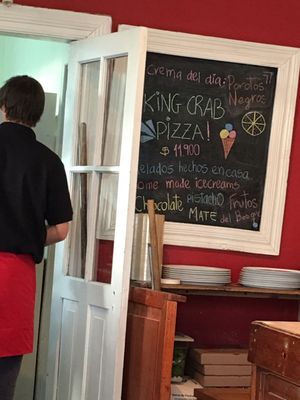 Crema del dia: Porotos
Negros
KING CRAB
PIZZA!
$ 11.900
Helados hechos en casa
Home made icecreams
Chocolate PISTACHO Frutos
MATE del Bosque